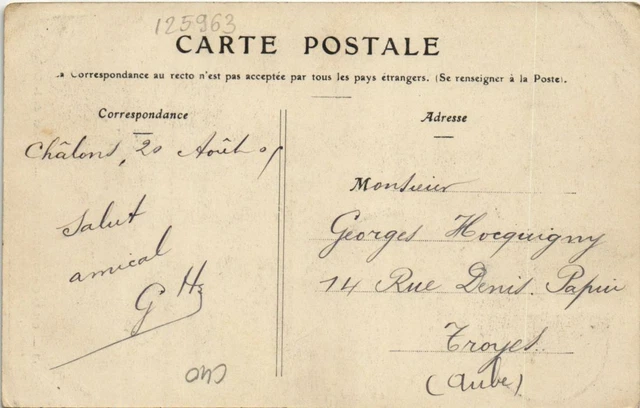 125963
CARTE POSTALE
La Correspondance au recto n'est pas acceptée par tous les pays étrangers. (Se renseigner à la Poste).
Correspondance
Châlons, 20 Août 05
Salut
amical
G H
Adresse
Monsieur
Georges Hocquigny
14 Rue Denis-Papin
Troyes
(Aube)